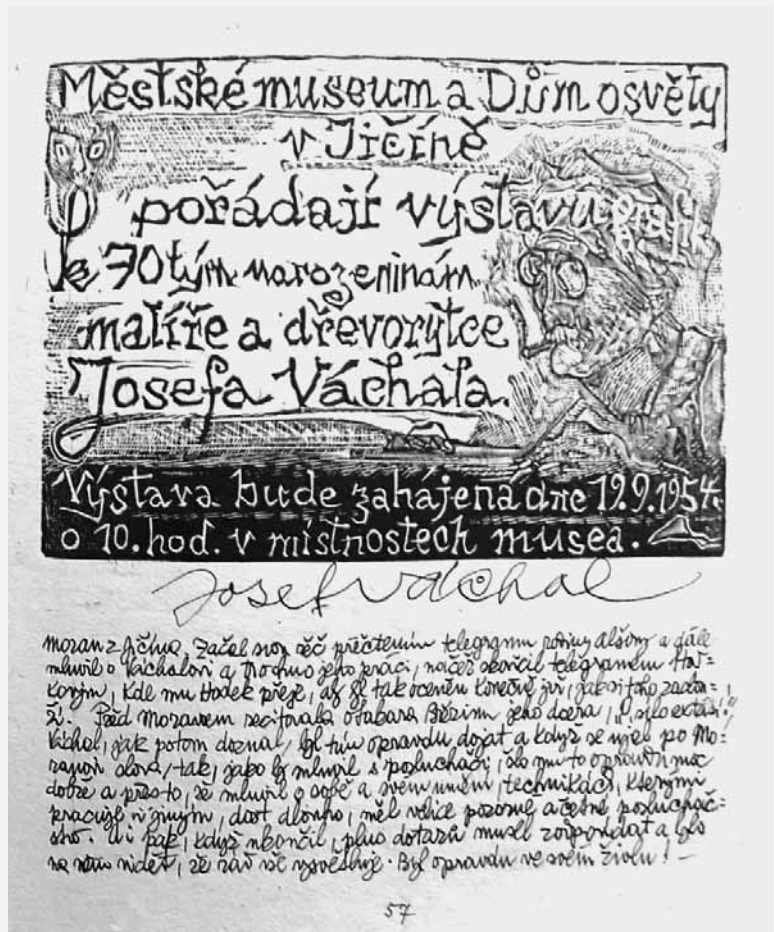 Městské museum a Dům osvěty
v Jičíně
pořádají výstavu grafik
k 70tým narozeninám
malíře a dřevorytce
Josefa Váchala.
Výstava bude zahájena dne 19.9.1954.
o 10. hod. v místnostech musea.
Josef Váchal
Moran z Jičína. Začal svou řeč přečtením telegramu rodiny Alšovy a dále
mluvil o Váchalovi a trochu jeho práci, načež skončil telegramem Hod=
kovým, kde mu Hodek přeje, aby se tak ocenění konečně
Před Moravem recitovala Otakara Březinu jeho dcera
Váchal, jak potom doznal, byl tím opravdu dojat a když se ujal po Mo=
ravovi slova, tak, jako by mluvil s posluchači, šlo mu to opravdu moc
dobře a přesto, že mluvil o sobě a svém umění, technikách, kterými
pracuje, dost dlouho, měl velice pozorné a četné posluchač=
stvo. A i pak, když skončil, plno dotazů musel zodpovídat a bylo
na něm vidět, že rád vše vysvětluje. Byl opravdu ve svém živlu! —
57